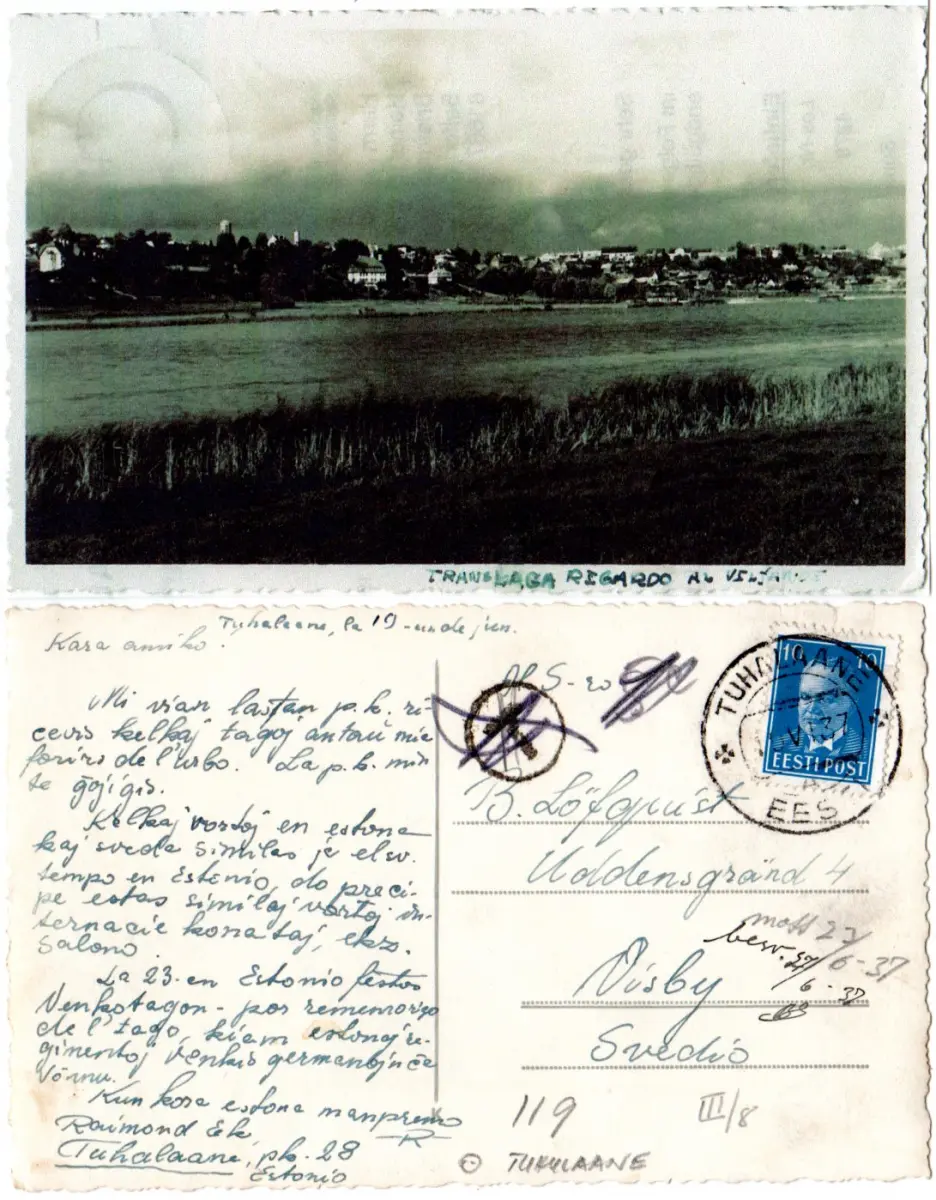 TRANSLAGA RIGARDO AL VILJANDI
Tuhalaane, la 19-un de jun.
Kara amiko.
Mi vian lastan p.k. ri-
cevis kelkaj tagoj antaŭ mia
foriro de l'urbo. La p.k. min
te ĝojigis.
Kelkaj vortoj en estona
kaj sveda similas je el sv.
tempo en Estonio, do preci-
pe estas similaj vortoj in-
ternacie konataj, ekz.
Salono.
La 23-en Estonio festos
Venkotagon - por rememorigo
de l'tago, kiam estonaj re-
gimentoj venkis germanojn ĉe
Võnnu.
Kun kora estona manpremo
Raimond Ek
Tuhalaane, pk. 28
Estonio
S-ro
B. Löfquist
Uddensgränd 4
Visby
Svedio
TUHALAANE
VI 37
EES
10 10
EESTI POST
mott 23/6-37
besv. 27/6-37
119
III/8
TUHALAANE